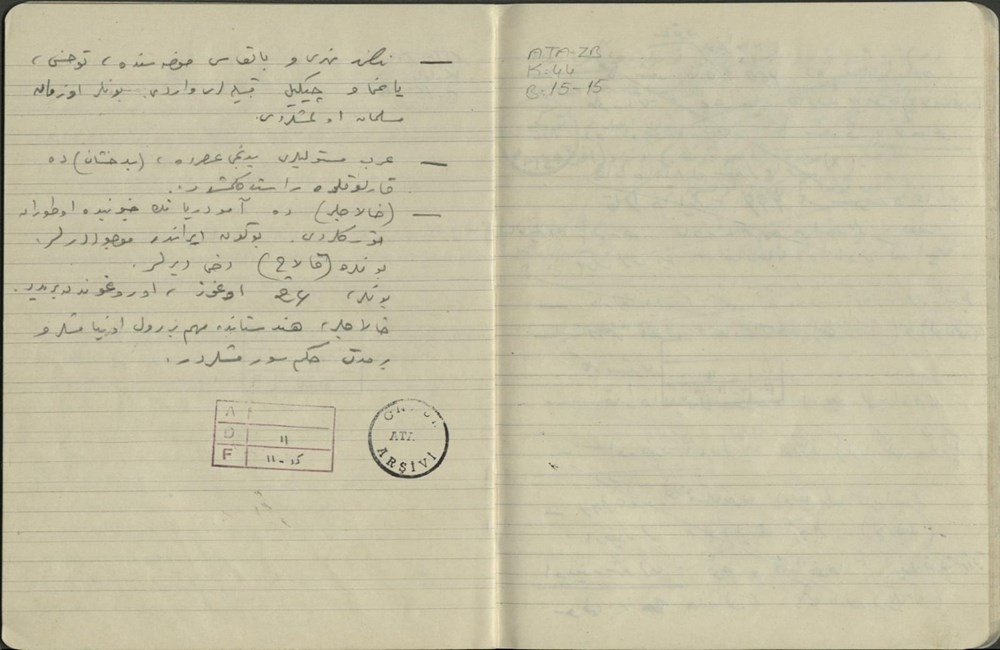 — نهری و حوضه‌سنده، توخسی،
یاغما و چیگیل قبیله‌لری واردی. بونلر او زمان
مسلمان اولمشلردی.
— عرب مستولیلری یدنجی عصرده، (بدخشان) ده
قارلوقلره راست گلمشلردر.
— (خالاجلر) ده آمودریا نك جنوبنده اوطوران
تورکلردی. بوگون ایرانده موجوددرلر.
بونلره (قالاچ) دخی دیرلر.
بونلر، اوغوز، اوروغوندندر.
خالاجلر، هندستانده مهم بر رول اوینامشلر و
بر مدت حکم سورمشلردر.
A
D ١١
F ١١-١٥
ATA
ARŞİVİ
ATA-ZB
K-44
B-15-15